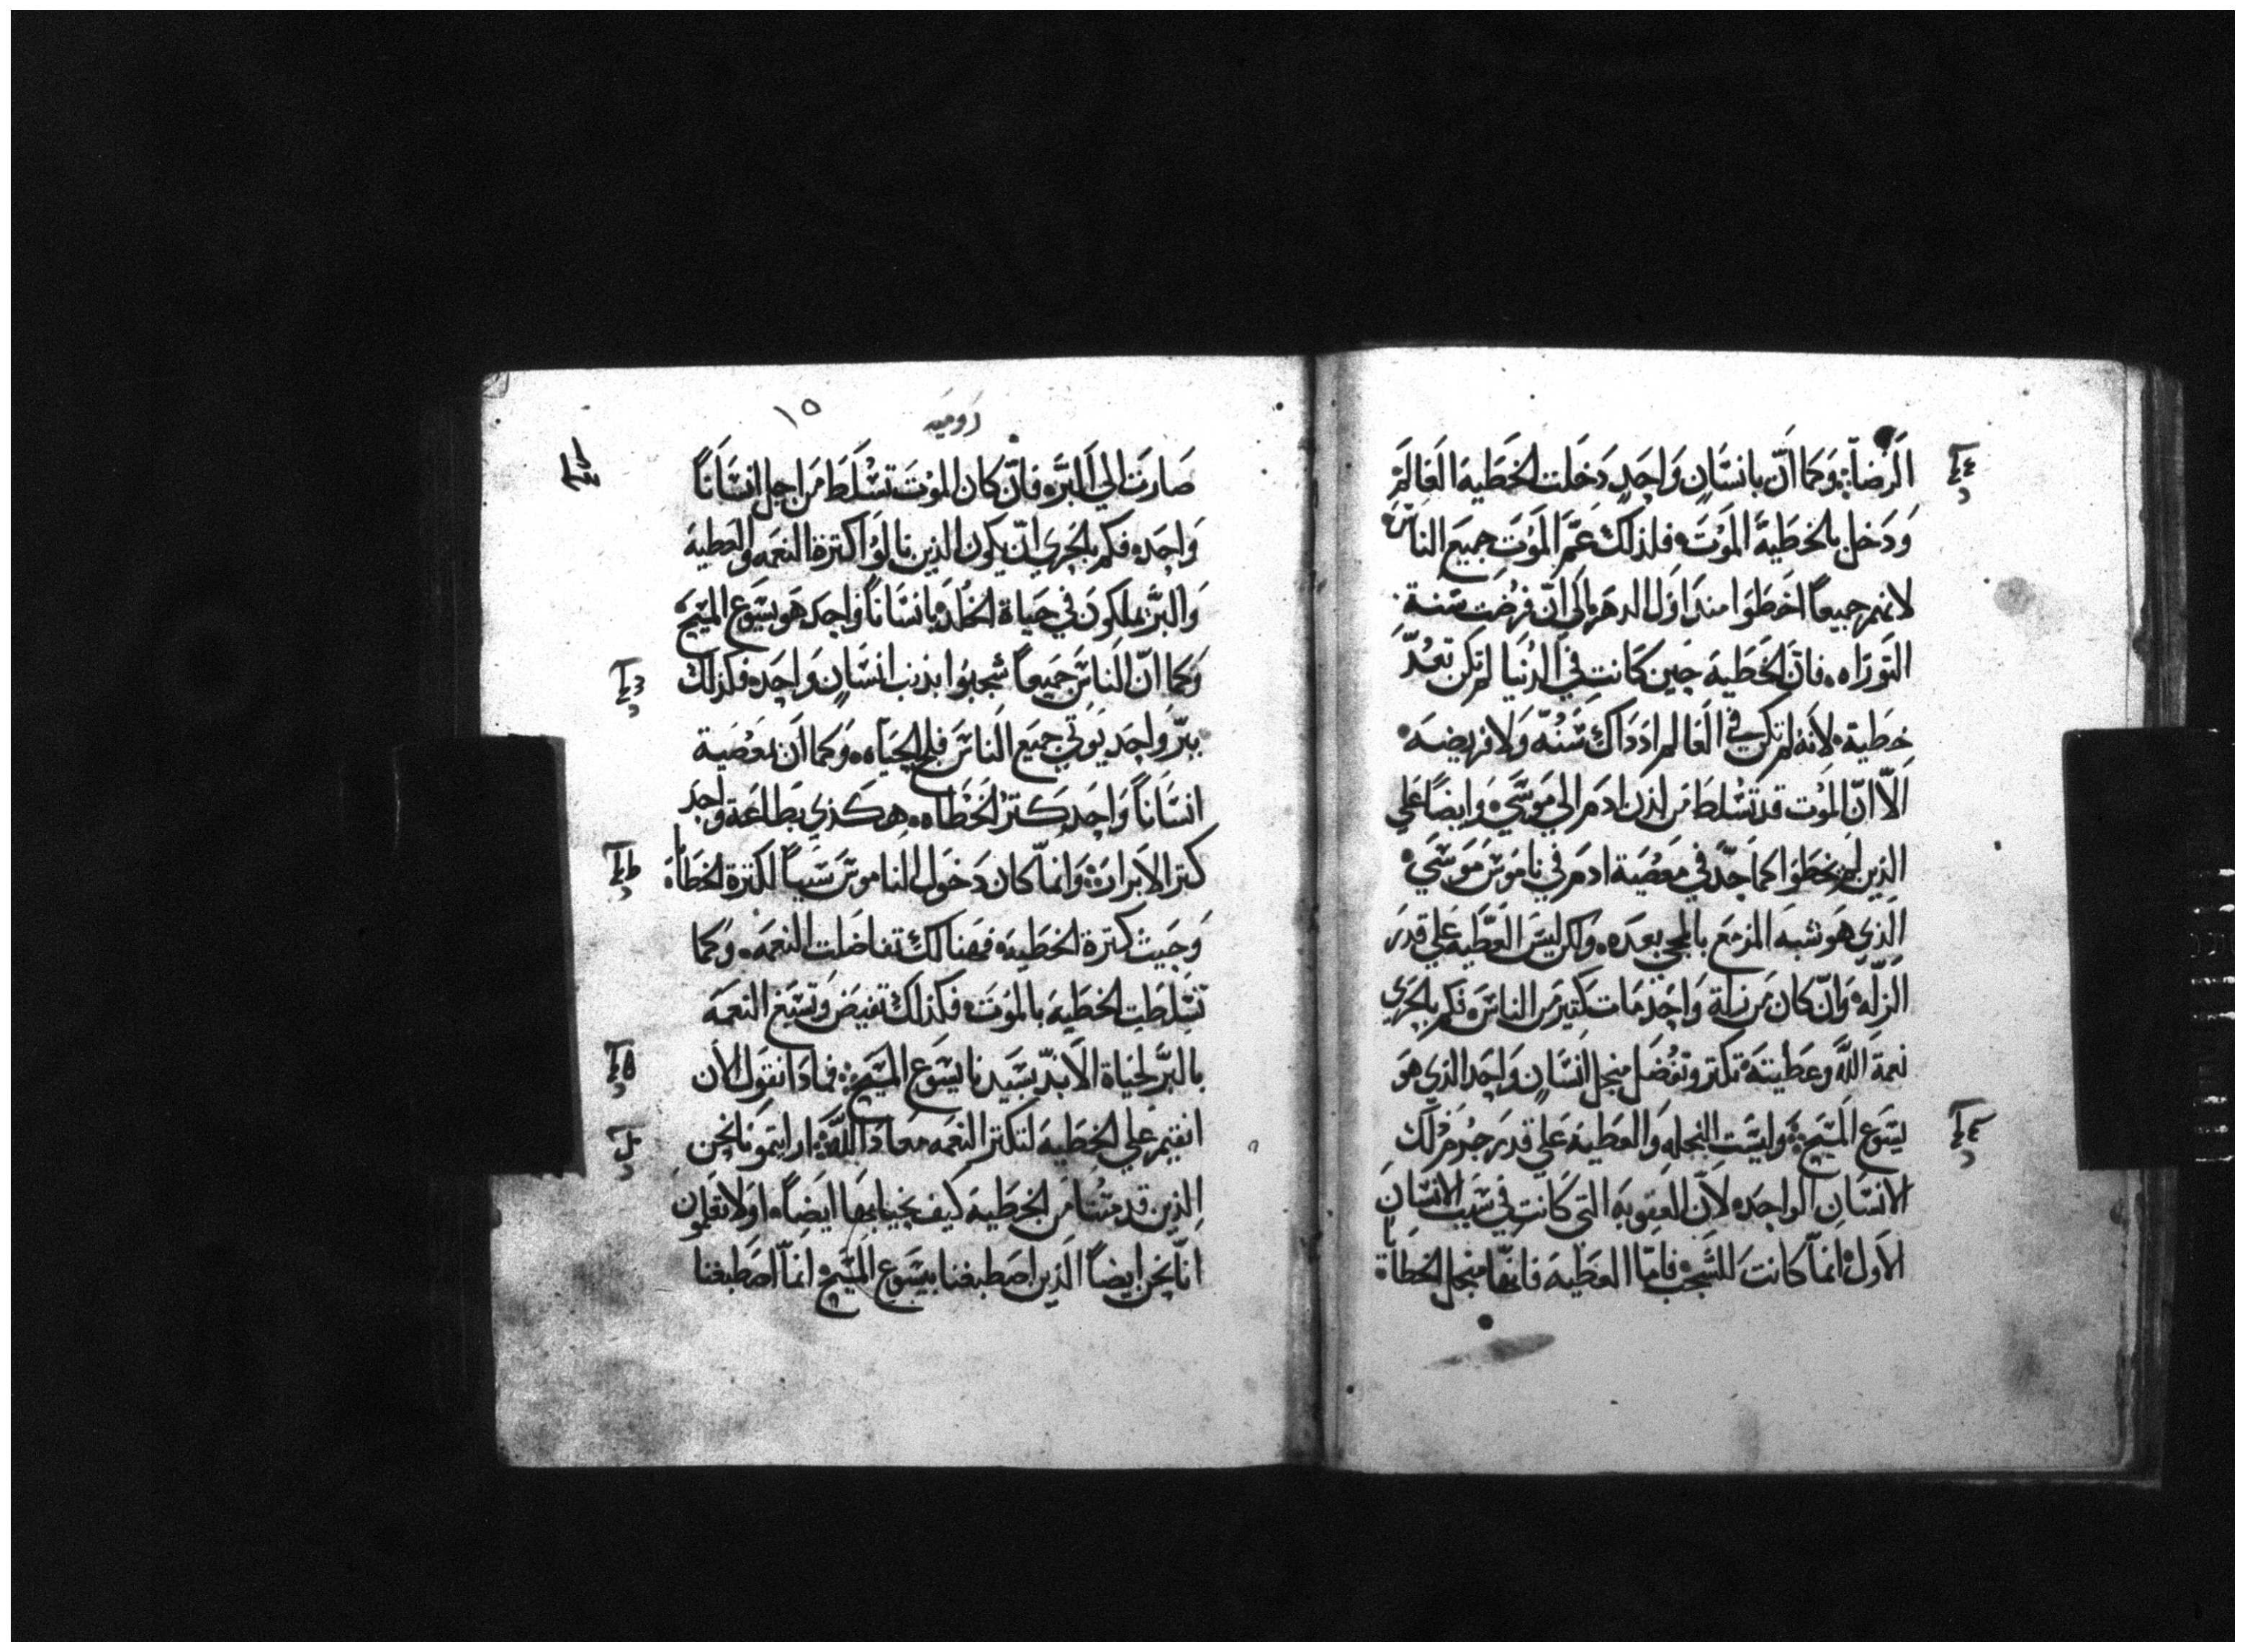 الرضاة وكما ان بانسان واحد دخلت الخطية العالم
ودخل بالخطية الموت فلذلك عم الموت جميع الناس
لانهم جميعا اخطوا منذ اول الدهر الي ان فرضت سنة
التوراه فان الخطية حين كانت في الدنيا لم تكن تعد
خطية لانه لم تكن في العالم اذ ذاك سنه ولا فريضه
الا ان الموت قد تسلط من لدن ادم الي موسي وايضا علي
الذين لم يخطوا كما حد في معصية ادم في ناموس موسي
الذي هو شبه المزمع بالمجي بعده ولكن ليس العطيه علي قدر
الزله وان كان من زلة واحد مات كتير من الناس فكم بالحري
نعمة الله وعطيته تكتر وتفضل منجل انسان واحد الذي هو
يسوع المسيح وليست النحله والعطية علي قدر جرم ذلك
الانسان الواحد لان العقوبه التي كانت في سبب الانسان
الاول انما كانت للشجب فاما العطيه فانها منجل الخطاة
روميه
١٥
صارت الي البر فان كان الموت تسلط من اجل انسانا
واحد فكم بالحري ان يكون الذين نالوا كترة النعمه والعطيه
والبر يملكون في حياة الخلد بانسانا واحد هو يسوع المسيح
وكما ان الناس جميعا شجبوا بذنب انسان واحد فكذلك
ببر واحد يوتي جميع الناس فلج الحياه وكما ان بمعصية
انسانا واحد كتر الخطاه هكذي بطاعة واحد
كتر الابرار وانما كان دخول الناموس سببا لكترة الخطاة
وحيث كترة الخطيه فهنالك تفاضلت النعمه وكما
تسلطت الخطيه بالموت فكذلك تفيض وتسبغ النعمه
بالبر لحياة الابد بسيدنا يسوع المسيح فماذا نقول الان
انقيم علي الخطيه لتكتر النعمه معاذ الله ارايتمونا نحن
الذين قد متنا من الخطيه كيف نحيا بها ايضا اولا تعلمون
انا نحن ايضا الذين اصطبغنا بيسوع المسيح انما اصطبغنا